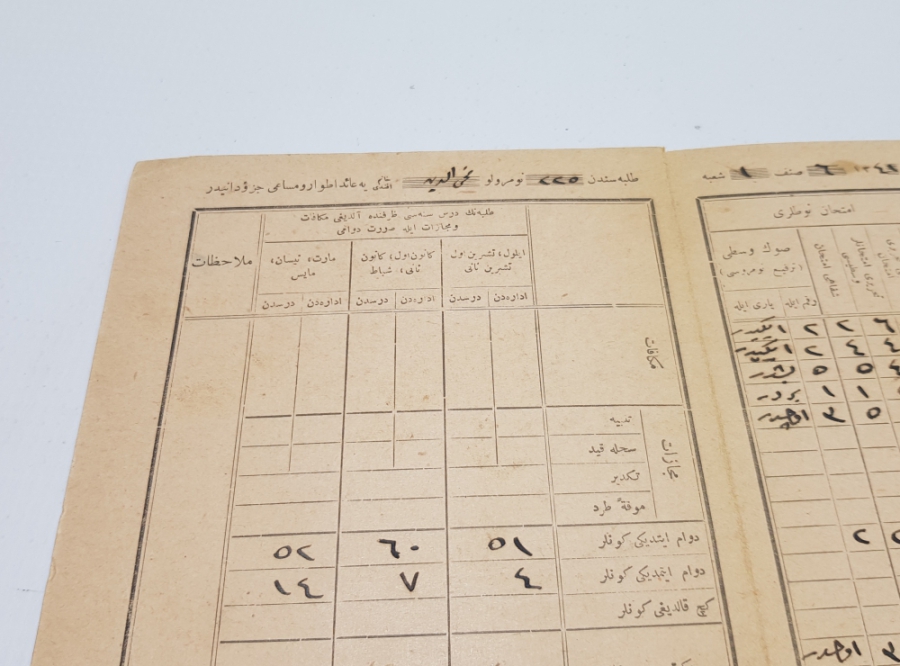 طلبه سندن ٢٢٥ نومرولو نجم الدین افندی‌یه عائد اطوار و مساعی جزؤدانیدر
صنف ٦ شعبه ١
طلبه‌نك درس سنه‌سی ظرفنده آلدیغی مكافات
ومجازات ایله صورت دوامی
ملاحظات
ایلول، تشرین اول
تشرین ثانی
كانون اول، كانون
ثانی، شباط
مارت، نیسان،
مایس
اداره‌دن درسدن اداره‌دن درسدن اداره‌دن درسدن
مكافات
مجازات
تنبیه
سجله قید
تكدیر
موقةً طرد
دوام ایتدیكی كونلر ٥١ ٦٠ ٥٢
دوام ایتمدیكی كونلر ٤ ٧ ١٤
كچ قالدیغی كونلر
امتحان نوطلری
صوك وسطی
(ترفیع نومروسی)
شفاهی امتحان
تحریری امتحانلر
وسطیسی
رقم ایله یازی ایله
٦ ٢ ٢ ایكیدر
٤ ٤ ٢ ایكیدر
٥ ٥ بشدر
١ ١ بردر
٥ ٣ اوچدر
٢
٣ اوچدر